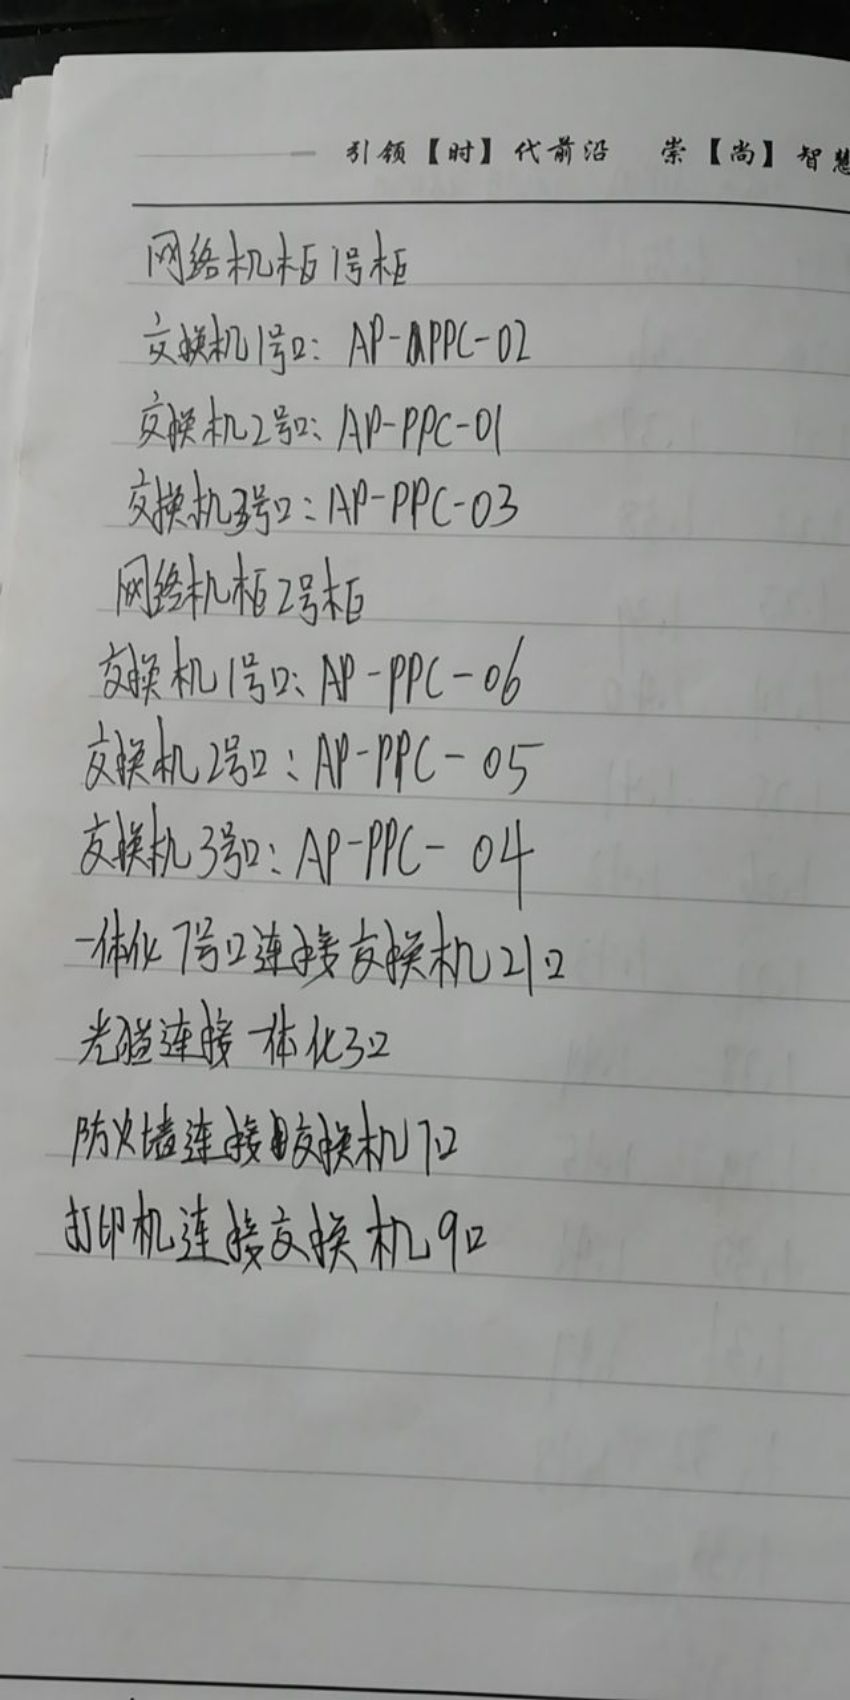 引领【时】代前沿 崇【尚】智慧
网络机柜1号柜
交换机1号口: AP-PPC-02
交换机2号口: AP-PPC-01
交换机3号口: AP-PPC-03
网络机柜2号柜
交换机1号口: AP-PPC-06
交换机2号口: AP-PPC-05
交换机3号口: AP-PPC-04
一体化7号口连接交换机21口
光猫连接一体化3口
防火墙连接交换机7口
打印机连接交换机9口